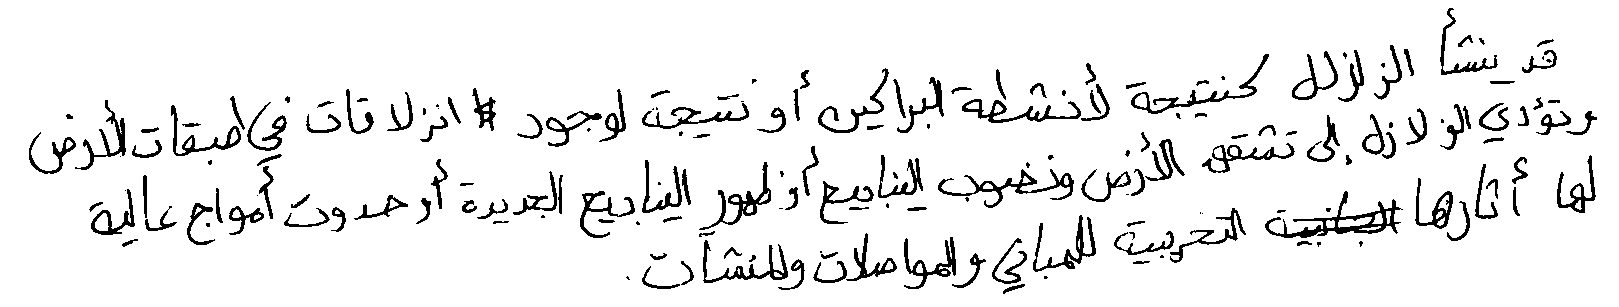 قد ينشأ الزلازل كنتيجة لأنشطة البراكين أو نتيجة لوجود انزلاقات في طبقات الأرض
وتؤدي الزلازل إلى تشقق الأرض ونضوب الينابيع أو ظهور الينابيع الجديدة أو حدوث أمواج عالية
لها أثارها الجانبية التخريبية للمباني والمواصلات والمنشآت.